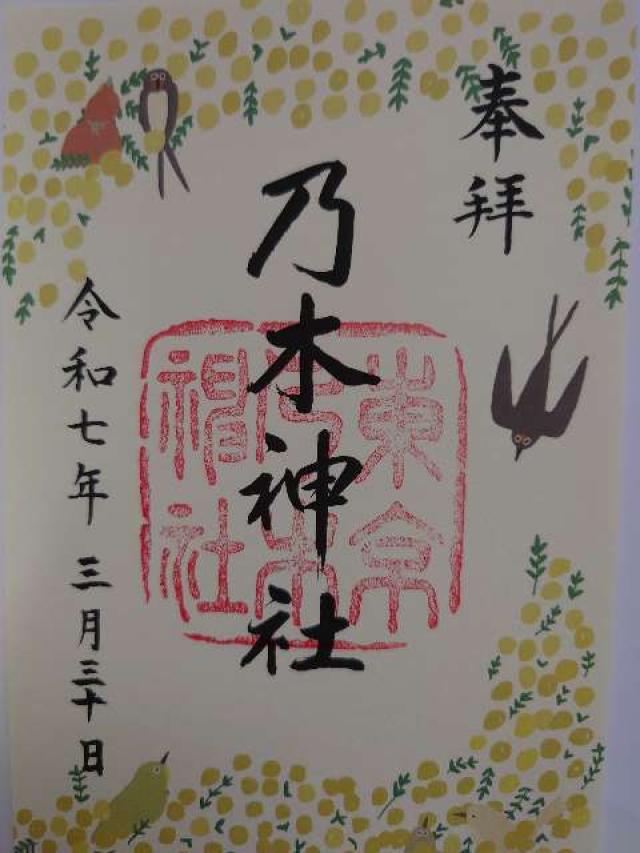 奉拝
乃木神社
東京
乃木
神社
令和七年三月三十日